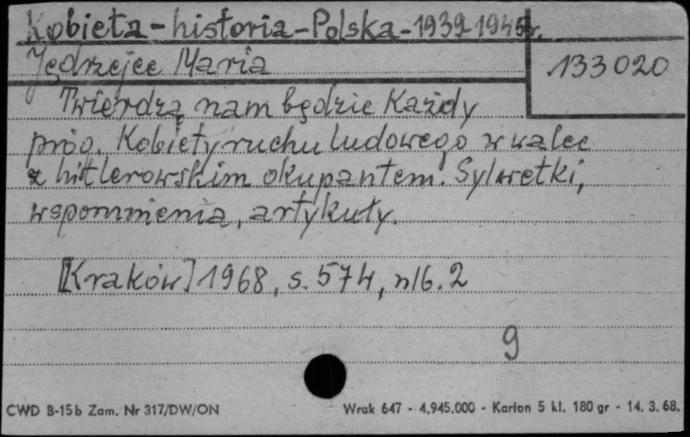 Kobieta - historia - Polska - 1939-1945r.
Jędrzejec Maria
133020
Twierdzą nam będzie każdy
próg. Kobiety ruchu ludowego w walce
z hitlerowskim okupantem. Sylwetki,
wspomnienia, artykuły.
[Kraków] 1968, s. 574, nlb. 2
9
CWD B-15b Zam. Nr 317/DW/ON
Wrak 647 - 4.945.000 - Karton 5 kl. 180 gr - 14. 3. 68.